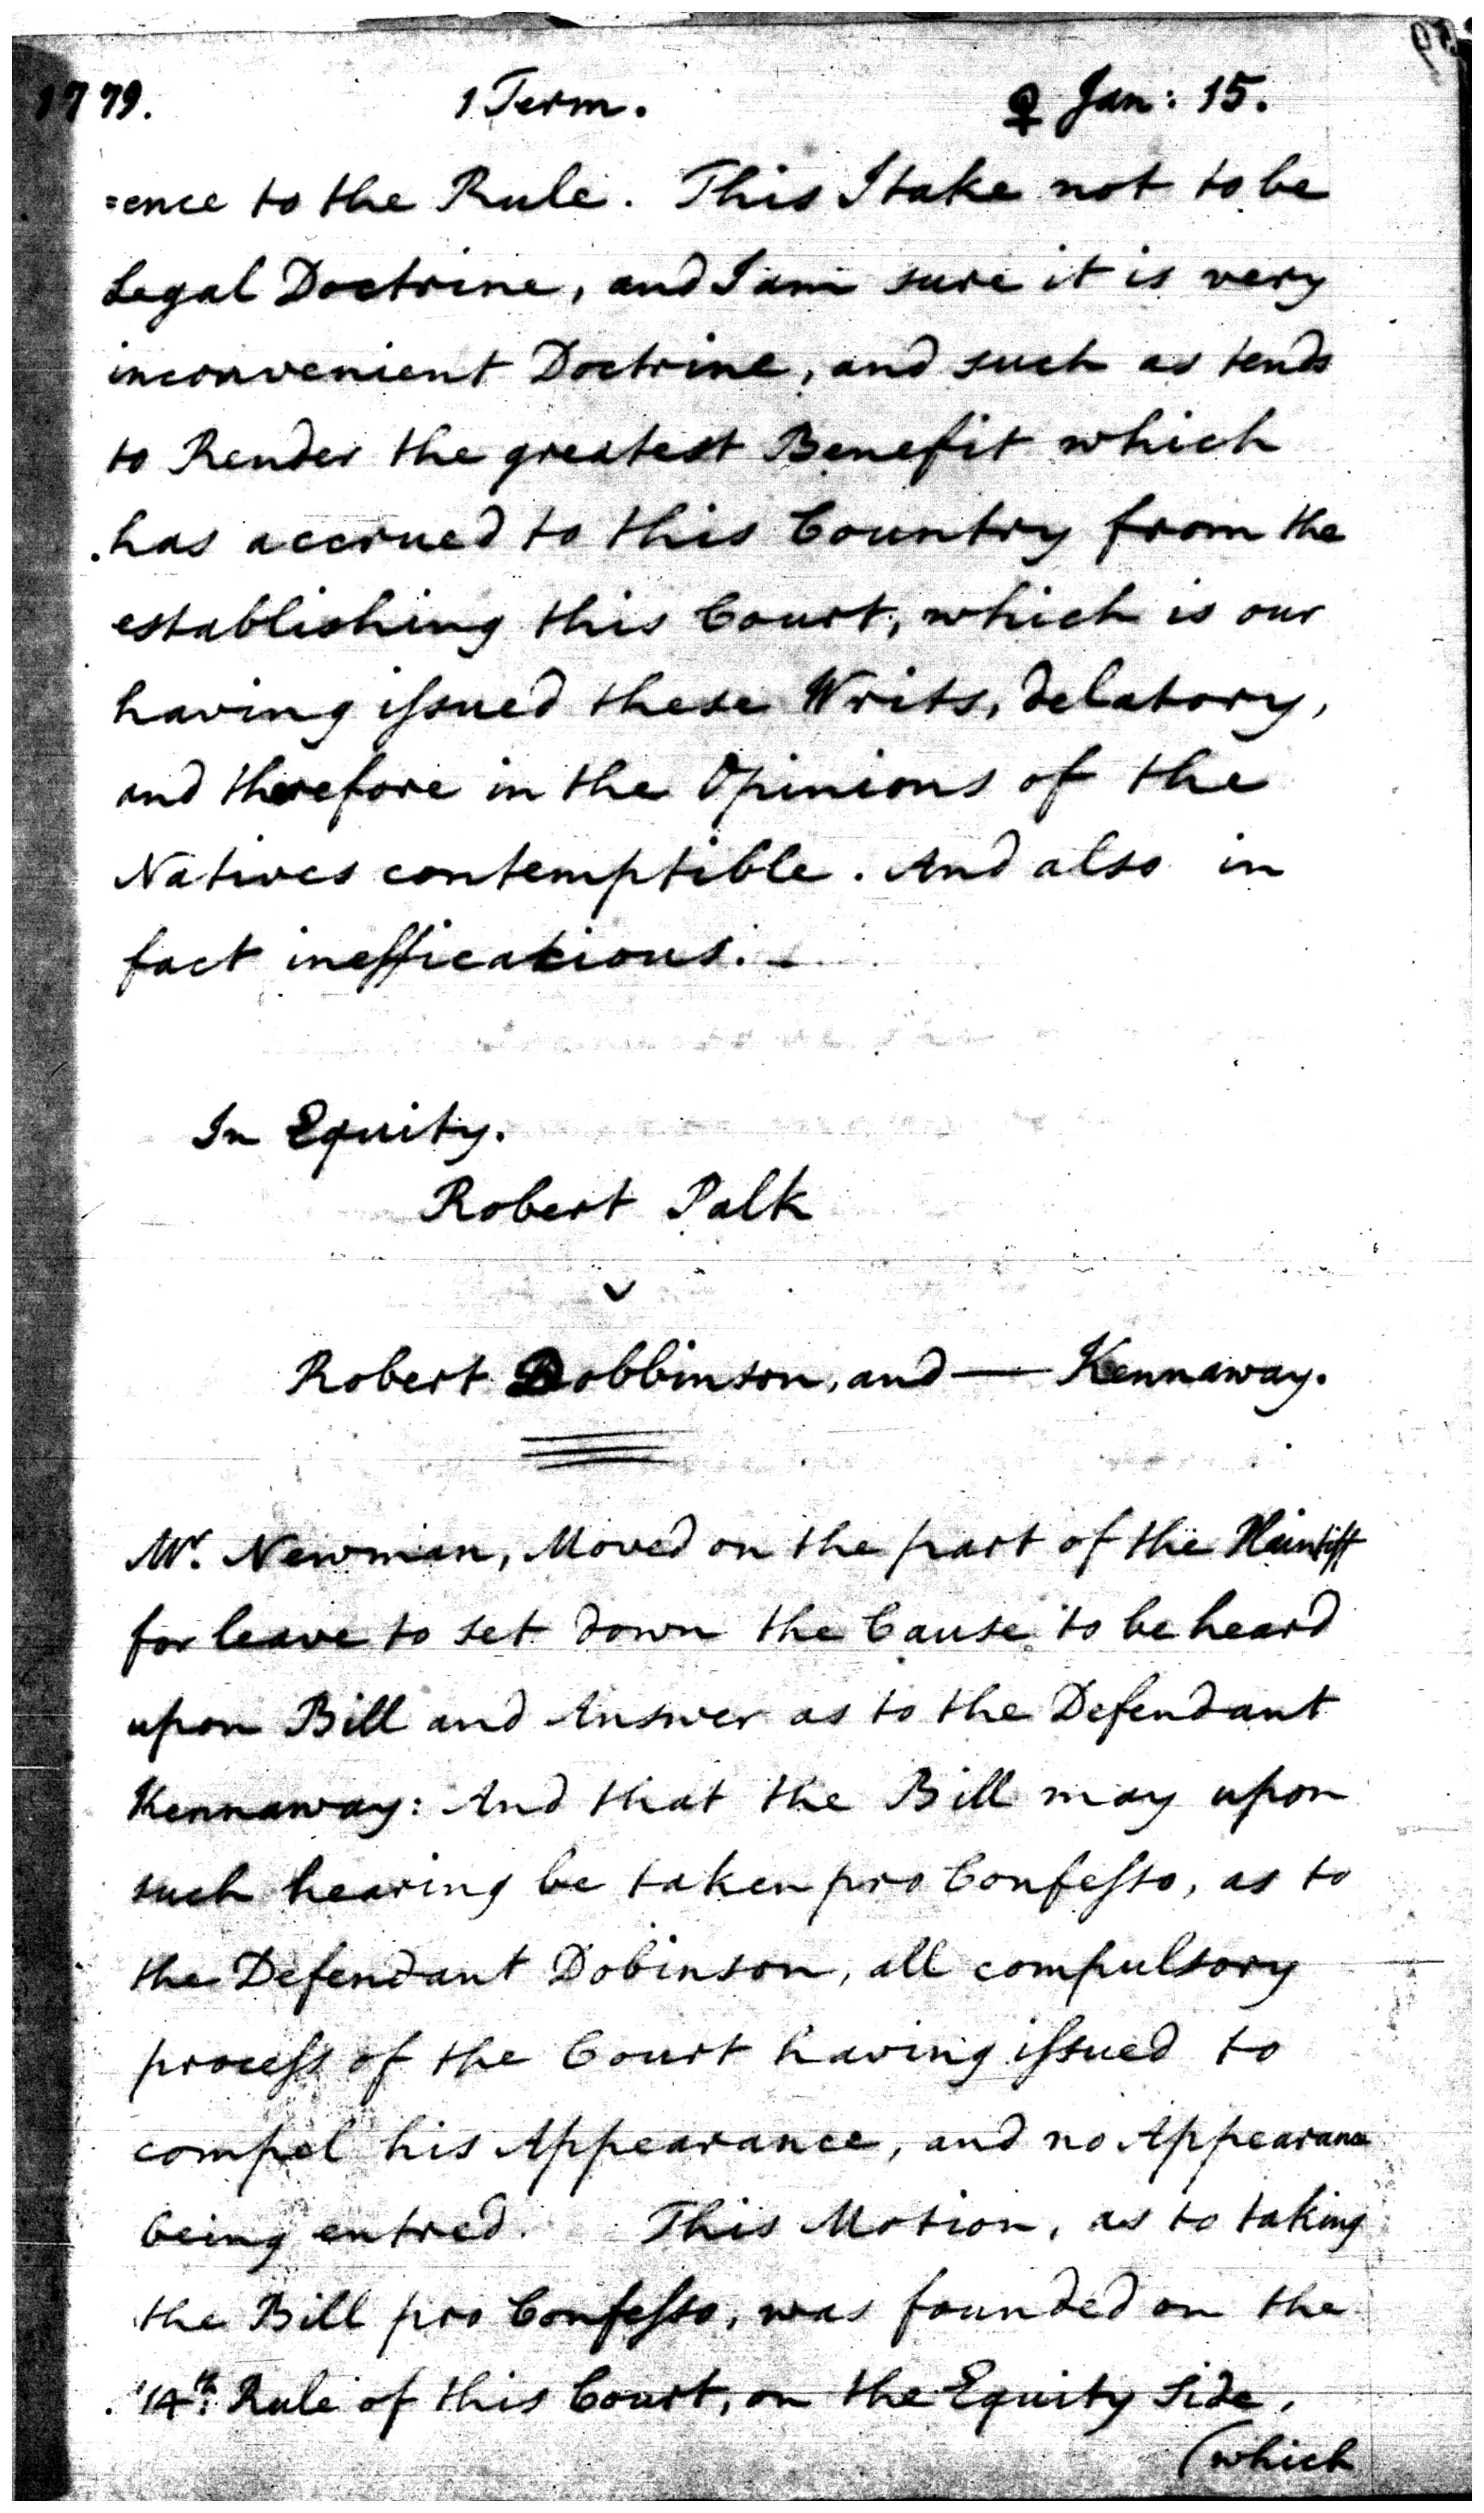 1779. 1 Term. ♀ Jan: 15.
=ence to the Rule. This I take not to be
Legal Doctrine, and I am sure it is very
inconvenient Doctrine, and such as tends
to Render the greatest Benefit which
has accrued to this Country from the
establishing this Court, which is our
having iſsued these Writs, delatory,
and therefore in the Opinions of the
Natives contemptible. And also in
fact inefficacious.
In Equity.
Robert Palk
v
Robert Dobbinson, and — Kennaway.
Mr. Newman, Moved on the part of the Plaintiff
for leave to set down the Cause to be heard
upon Bill and Answer as to the Defendant
Kennaway: And that the Bill may upon
such hearing be taken pro Confeſso, as to
the Defendant Dobinson, all compulsory
proceſs of the Court having iſsued to
compel his Appearance, and no Appearance
being entred. This Motion, as to taking
the Bill pro Confeſso, was founded on the
14th: Rule of this Court, on the Equity Side,
(which